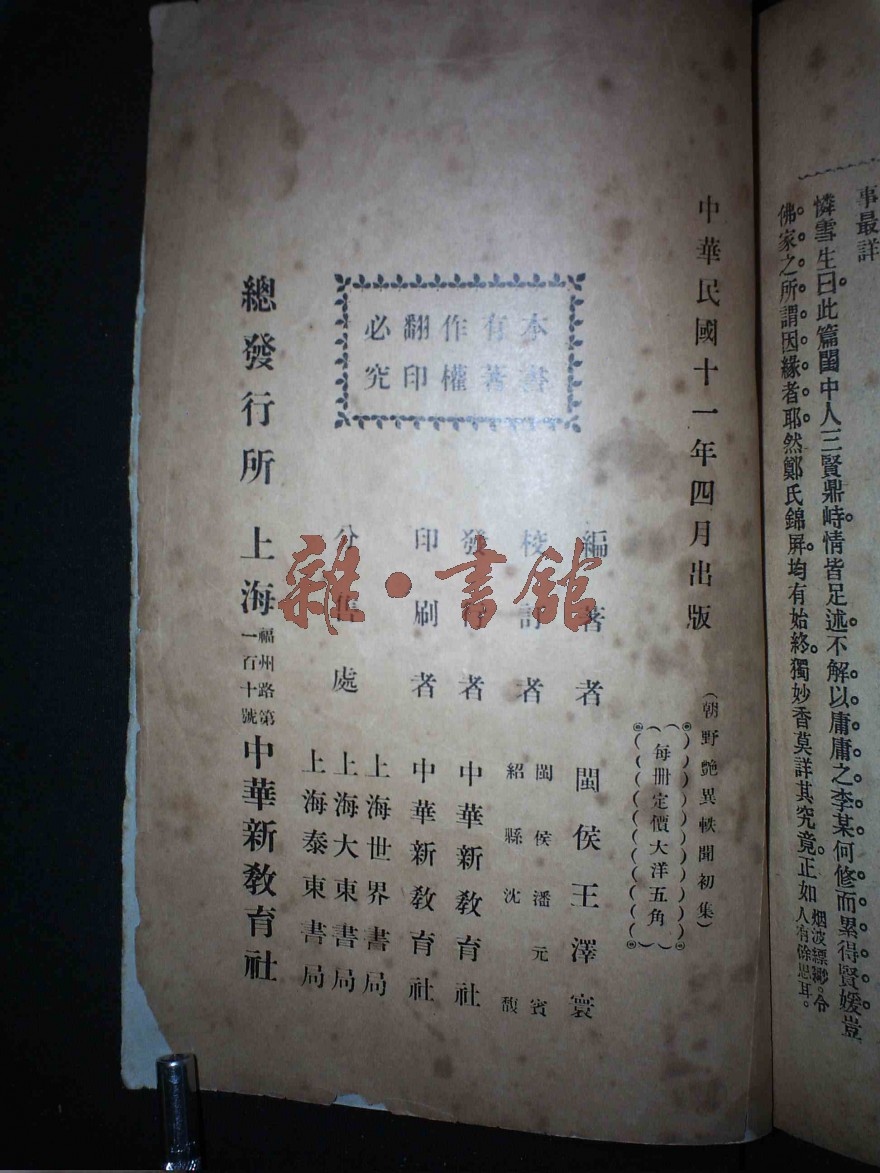 事最詳
憐雪生曰此篇閨中人三賢鼎峙情皆足述。不解以庸庸之李某。何修而累得賢媛。豈
佛家之所謂因緣者耶。然鄭氏錦屏。均有始終。獨妙香莫詳其究竟。正如烟波縹緲。令
人有餘思耳。
中華民國十一年四月出版
(朝野艷異軼聞初集)
每冊定價大洋五角
本書
有著
作權
翻印
必究
編著者 閩侯王澤寰
校訂者 閩侯潘元賓
紹縣沈馥
發行者 中華新敎育社
印刷者 中華新敎育社
分售處 上海世界書局
上海大東書局
上海泰東書局
總發行所 上海福州路第一百十號中華新敎育社
雜·書館